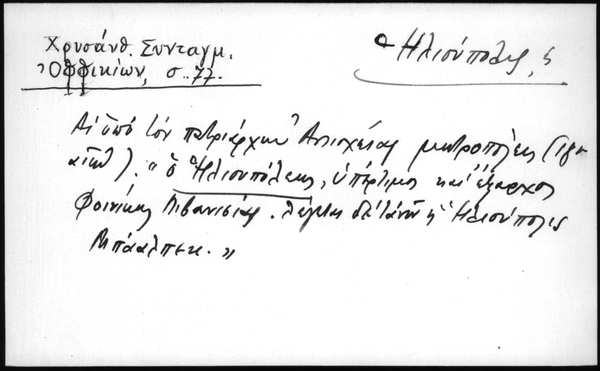 Χρυσάνθ. Συνταγμ.
Ὀφφικίων, σ. 77.
Ἡλιούπολις, ἡ
Αἱ ὑπὸ τὸν πατριάρχην Ἀντιοχείας μητροπόλεις
). "ὁ Ἡλιουπόλεως, ὑπέρτιμος καὶ ἔξαρχος
Φοινίκης Λιβανισίας. λέγεται δὲ τανῦν ἡ Ἡλιούπολις
Μπάαλπεκ."